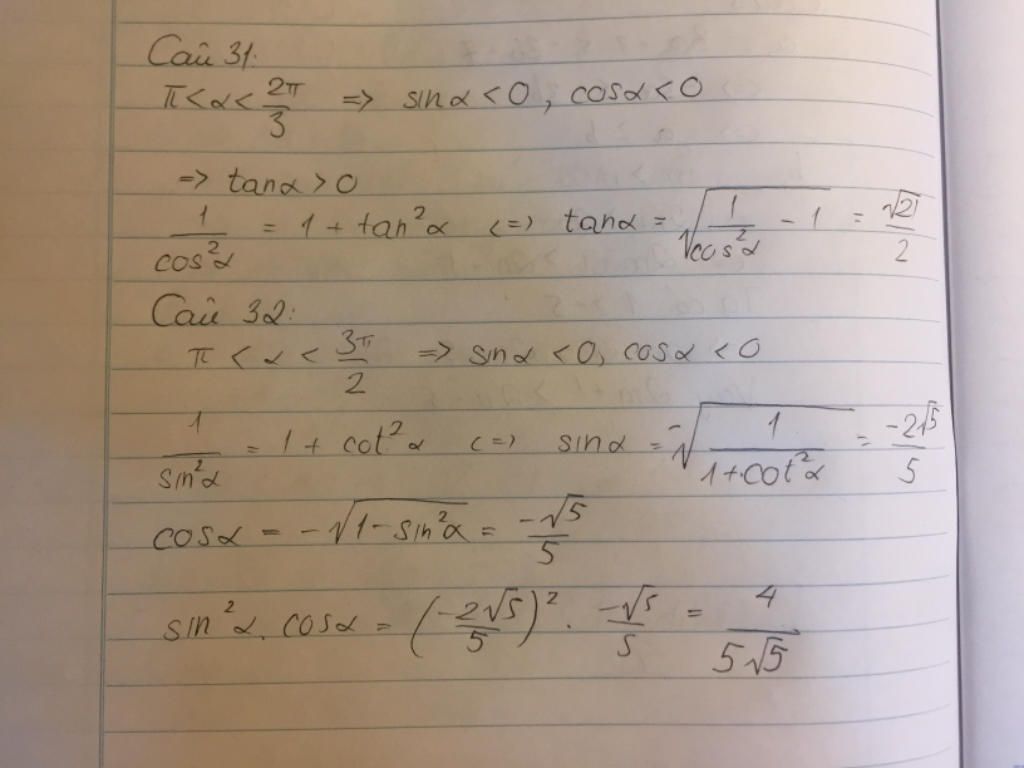 Câu 31:
π < α < 2π/3 => sinα < 0, cosα < 0
=> tanα > 0
1/cos²α = 1 + tan²α <=> tanα = √(1/cos²α - 1) = √21/2
Câu 32:
π < α < 3π/2 => sinα < 0, cosα < 0
1/sin²α = 1 + cot²α <=> sinα = -√(1/(1+cot²α)) = -2√5/5
cosα = -√(1-sin²α) = -√5/5
sin²α. cosα = (-2√5/5)² . -√5/5 = 4/5√5